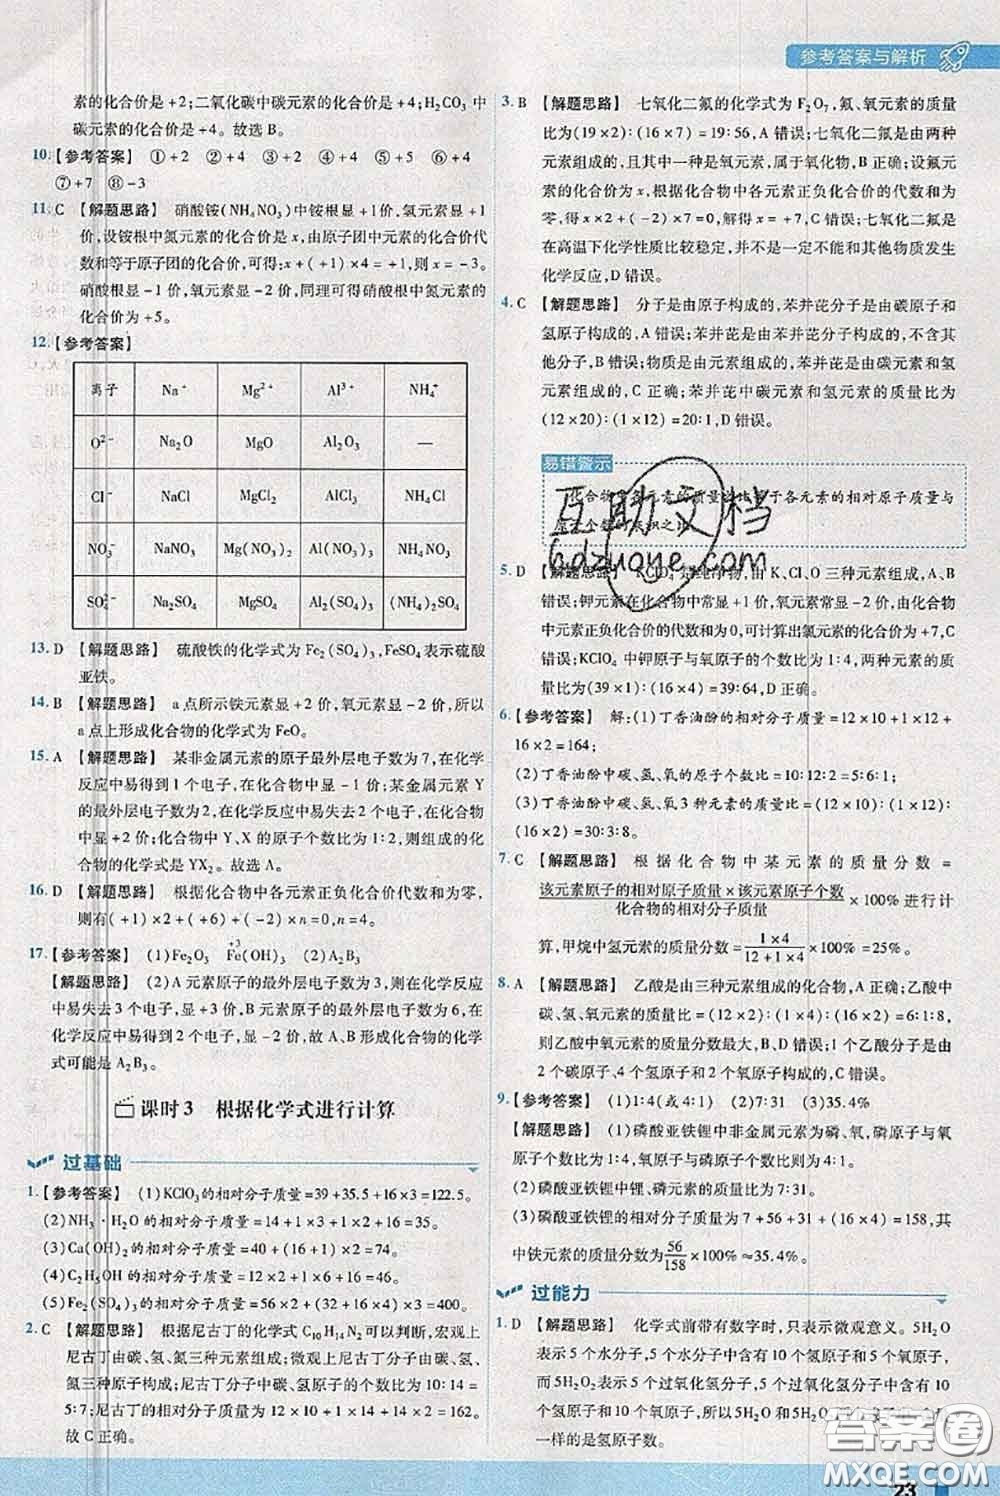 参考答案与解析
素的化合价是+2;二氧化碳中碳元素的化合价是+4;H₂CO₃中
碳元素的化合价是+4。故选B。
10.【参考答案】 ①+2 ②+4 ③+5 ④+2 ⑤+6 ⑥+4
⑦+7 ⑧-3
11. C 【解题思路】 硝酸铵(NH₄NO₃)中铵根显+1价,氢元素显+1
价,设铵根中氮元素的化合价是x,由原子团中各元素的化合价代
数和等于原子团的化合价,可得:x+(+1)×4=+1,则x=-3。
硝酸根显-1价,氧元素显-2价,同理可得硝酸根中氮元素的
化合价为+5。
12.【参考答案】
离子 Na⁺ Mg²⁺ Al³⁺ NH₄⁺
O²⁻ Na₂O MgO Al₂O₃ —
Cl⁻ NaCl MgCl₂ AlCl₃ NH₄Cl
NO₃⁻ NaNO₃ Mg(NO₃)₂ Al(NO₃)₃ NH₄NO₃
SO₄²⁻ Na₂SO₄ MgSO₄ Al₂(SO₄)₃ (NH₄)₂SO₄
13. D 【解题思路】 硫酸铁的化学式为Fe₂(SO₄)₃,FeSO₄表示硫酸
亚铁。
14. B 【解题思路】 a点所示铁元素显+2价,氧元素显-2价,所以
a点上形成化合物的化学式为FeO。
15. A 【解题思路】 某非金属元素的原子最外层电子数为7,在化学
反应中易得到1个电子,在化合物中显-1价;某金属元素Y
的最外层电子数为2,在化学反应中易失去2个电子,在化合物
中显+2价;化合物中Y、X的原子个数比为1:2,则组成的化
合物的化学式是YX₂。故选A。
16. D 【解题思路】 根据化合物中各元素正负化合价代数和为零,
则有(+1)×2+(+6)+(-2)×n=0,n=4。
17.【参考答案】 (1)Fe₂O₃ Fe(OH)₃ (2)A₂B₃
+3
【解题思路】 (2)A元素原子的最外层电子数为3,则在化学反应
中易失去3个电子,显+3价,B元素原子的最外层电子数为6,在
化学反应中易得到2个电子,显-2价,故A、B形成化合物的化学
式可能是A₂B₃。
课时3 根据化学式进行计算
过基础
1.【参考答案】 (1)KClO₃的相对分子质量=39+35.5+16×3=122.5。
(2)NH₃·H₂O的相对分子质量=14+1×3+1×2+16=35。
(3)Ca(OH)₂的相对分子质量=40+(16+1)×2=74。
(4)C₂H₅OH的相对分子质量=12×2+1×6+16=46。
(5)Fe₂(SO₄)₃的相对分子质量=56×2+(32+16×4)×3=400。
2. C 【解题思路】 根据尼古丁的化学式C₁₀H₁₄N₂可以判断,宏观上
尼古丁由碳、氢、氮三种元素组成;微观上尼古丁分子由碳、氢、
氮三种原子构成;尼古丁分子中碳、氢原子个数比为10:14=
5:7;尼古丁的相对分子质量=12×10+1×14+14×2=162。
故C正确。
3. B 【解题思路】 七氧化二氟的化学式为F₂O₇,氟、氧元素的质量
比为(19×2):(16×7)=19:56,A错误;七氧化二氟是由两种
元素组成的,且其中一种是氧元素,属于氧化物,B正确;设氟元
素的化合价为x,根据化合物中各元素正负化合价的代数和为
零,得x×2+(-2)×7=0,解得x=+7,C错误;七氧化二氟是
在高温下化学性质比较稳定,并不是一定不能和其他物质发生
化学反应,D错误。
4. C 【解题思路】 分子是由原子构成的,苯并芘分子是由碳原子和
氢原子构成的,A错误;苯并芘是由苯并芘分子构成的,不含其
他分子,B错误;物质是由元素组成的,苯并芘是由碳元素和氢
元素组成的,C正确;苯并芘中碳元素和氢元素的质量比为
(12×20):(1×12)=20:1,D错误。
易错警示
化合物中各元素的质量之比等于各元素的相对原子质量与
原子个数的乘积之比
5. D 【解题思路】 KClO₄是纯净物,由K、Cl、O三种元素组成,A、B
错误;钾元素在化合物中常显+1价,氧元素常显-2价,由化合物
中元素正负化合价的代数和为0,可计算出氯元素的化合价为+7,C
错误;KClO₄中钾原子与氧原子的个数比为1:4,两种元素的质量
比为(39×1):(16×4)=39:64,D正确。
6.【参考答案】 解:(1)丁香油酚的相对分子质量=12×10+1×12+
16×2=164;
(2)丁香油酚中碳、氢、氧的原子个数比=10:12:2=5:6:1;
(3)丁香油酚中碳、氢、氧3种元素的质量比=(12×10):(1×12):
(16×2)=30:3:8。
7. C 【解题思路】 根据化合物中某元素的质量分数=
该元素原子的相对原子质量×该元素原子个数/化合物的相对分子质量×100%进行计
算,甲烷中氢元素的质量分数=1×4/12+1×4×100%=25%。
8. A 【解题思路】 乙酸是由三种元素组成的化合物,A正确;乙酸中
碳、氢、氧元素的质量比=(12×2):(1×4):(16×2)=6:1:8,
则乙酸中氧元素的质量分数最大,B、D错误;1个乙酸分子是由
2个碳原子、4个氢原子和2个氧原子构成的,C错误。
9.【参考答案】 (1)1:4(或4:1) (2)7:31 (3)35.4%
【解题思路】 (1)磷酸亚铁锂中非金属元素为磷、氧,磷原子与氧
原子的个数比为1:4,氧原子与磷原子的个数比为4:1。
(2)磷酸亚铁锂中锂、磷元素的质量比为7:31。
(3)磷酸亚铁锂的相对分子质量为7+56+31+(16×4)=158,其
中铁元素的质量分数为56/158×100%≈35.4%。
过能力
1. D 【解题思路】 化学式前带有数字时,只表示微观意义。5H₂O
表示5个水分子,5个水分子中含有10个氢原子和5个氧原子,
而5H₂O₂表示5个过氧化氢分子,5个过氧化氢分子中含有10个
氢原子和10个氧原子,所以5H₂O和5H₂O₂中含有的数量
一样的是氢原子数。
互助文档
hdzuoye.com
答案圈
MXQE.COM
23